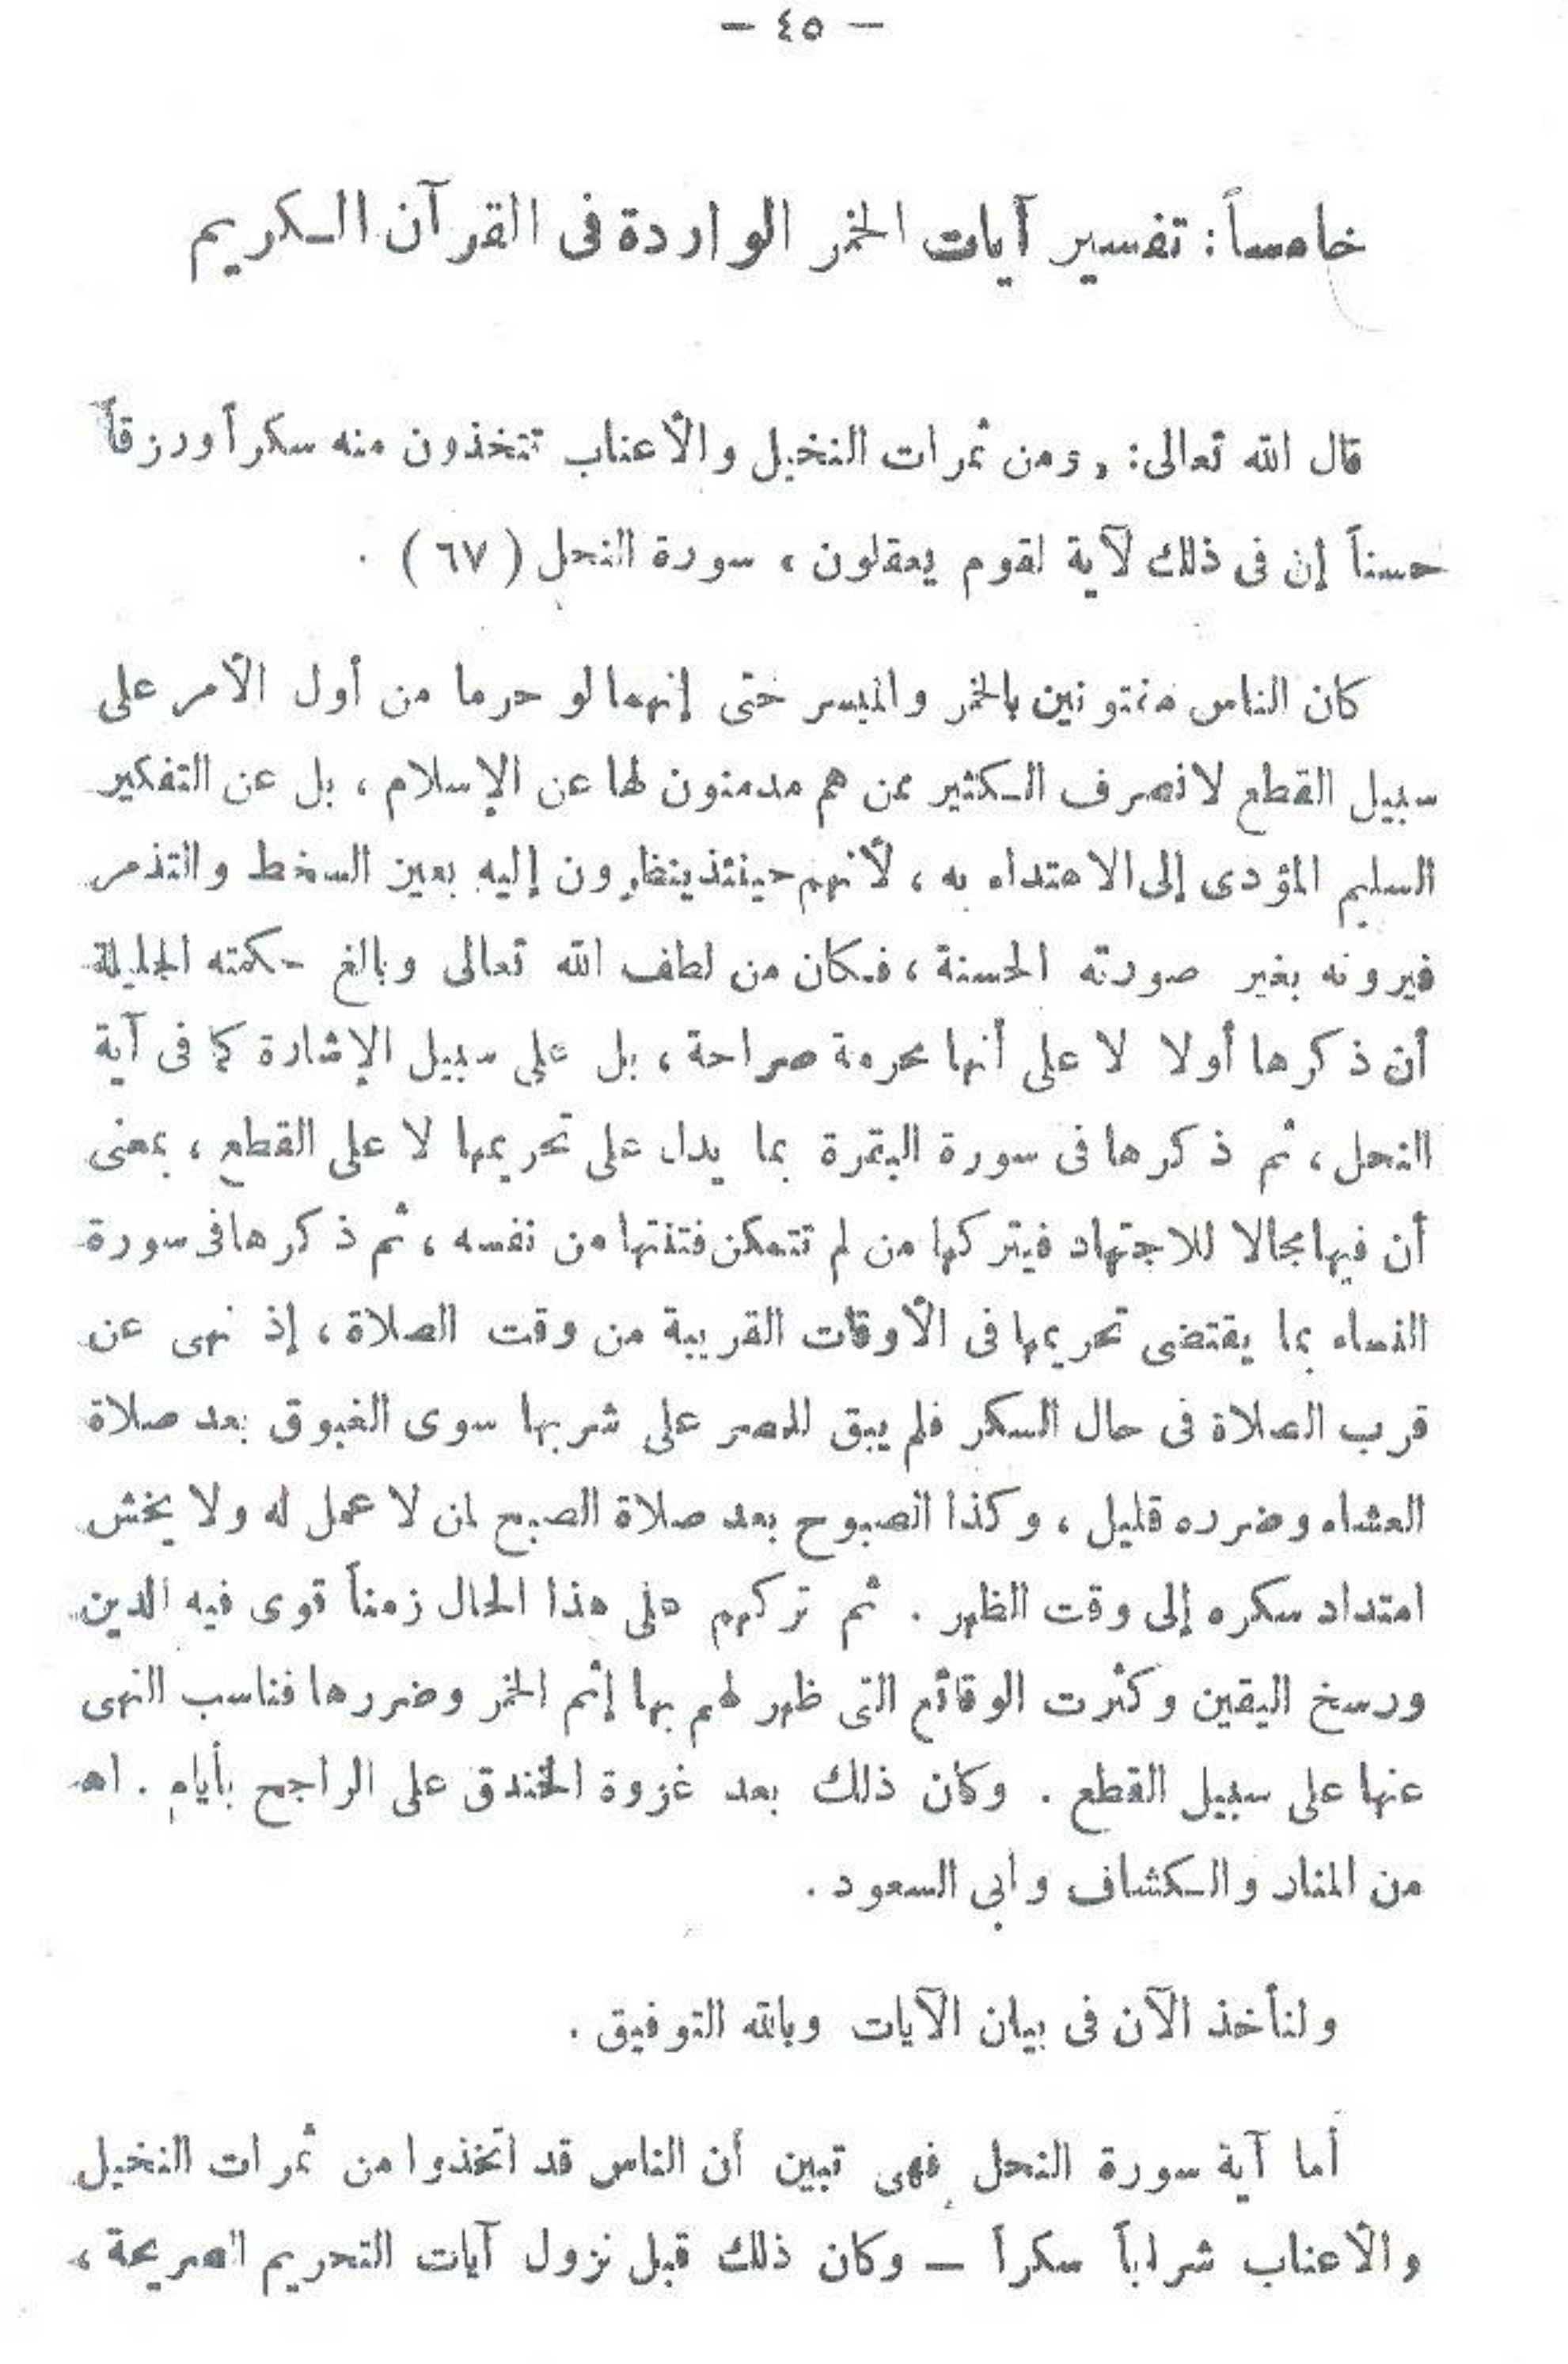 — ٤٥ —
خامساً : تفسير آيات الخمر الواردة فى القرآن الكريم
قال الله تعالى: « ومن ثمرات النخيل والأعناب تتخذون منه سكراً ورزقاً
حسناً إن فى ذلك لآية لقوم يعقلون » سورة النحل ( ٦٧ ) .
كان الناس مفتونين بالخمر والميسر حتى إنهما لو حرما من أول الأمر على
سبيل القطع لانصرف الكثير ممن هم مدمنون لها عن الإسلام ، بل عن التفكير
السليم المؤدى إلى الاهتداء به ، لأنهم حينئذ ينظرون إليه بعين السخط والتذمر
فيرونه بغير صورته الحسنة ، فكان من لطف الله تعالى وبالغ حكمته الجليلة
أن ذكرها أولا لا على أنها محرمة صراحة ، بل على سبيل الإشارة كما فى آية
النحل ، ثم ذكرها فى سورة البقرة بما يدل على تحريمها لا على القطع ، بمعنى
أن فيها مجالا للاجتهاد فيتركها من لم تتمكن فتنتها من نفسه ، ثم ذكرها فى سورة
النساء بما يقتضى تحريمها فى الأوقات القريبة من وقت الصلاة ، إذ نهى عن
قرب الصلاة فى حال السكر فلم يبق للمصر على شربها سوى الغبوق بعد صلاة
العشاء وضرره قليل ، وكذا الصبوح بعد صلاة الصبح لمن لا عمل له ولا يخش
امتداد سكره إلى وقت الظهر . ثم تركهم على هذا الحال زمناً قوى فيه الدين
ورسخ اليقين وكثرت الوقائع التى ظهر لهم بها إثم الخمر وضررها فناسب النهى
عنها على سبيل القطع . وكان ذلك بعد غزوة الخندق على الراجح بأيام . اهـ
من المنار والكشاف وأبى السعود .
ولنأخذ الآن فى بيان الآيات وبالله التوفيق .
أما آية سورة النحل فهى تبين أن الناس قد اتخذوا من ثمرات النخيل
والأعناب شراباً سكراً — وكان ذلك قبل نزول آيات التحريم الصريحة ،